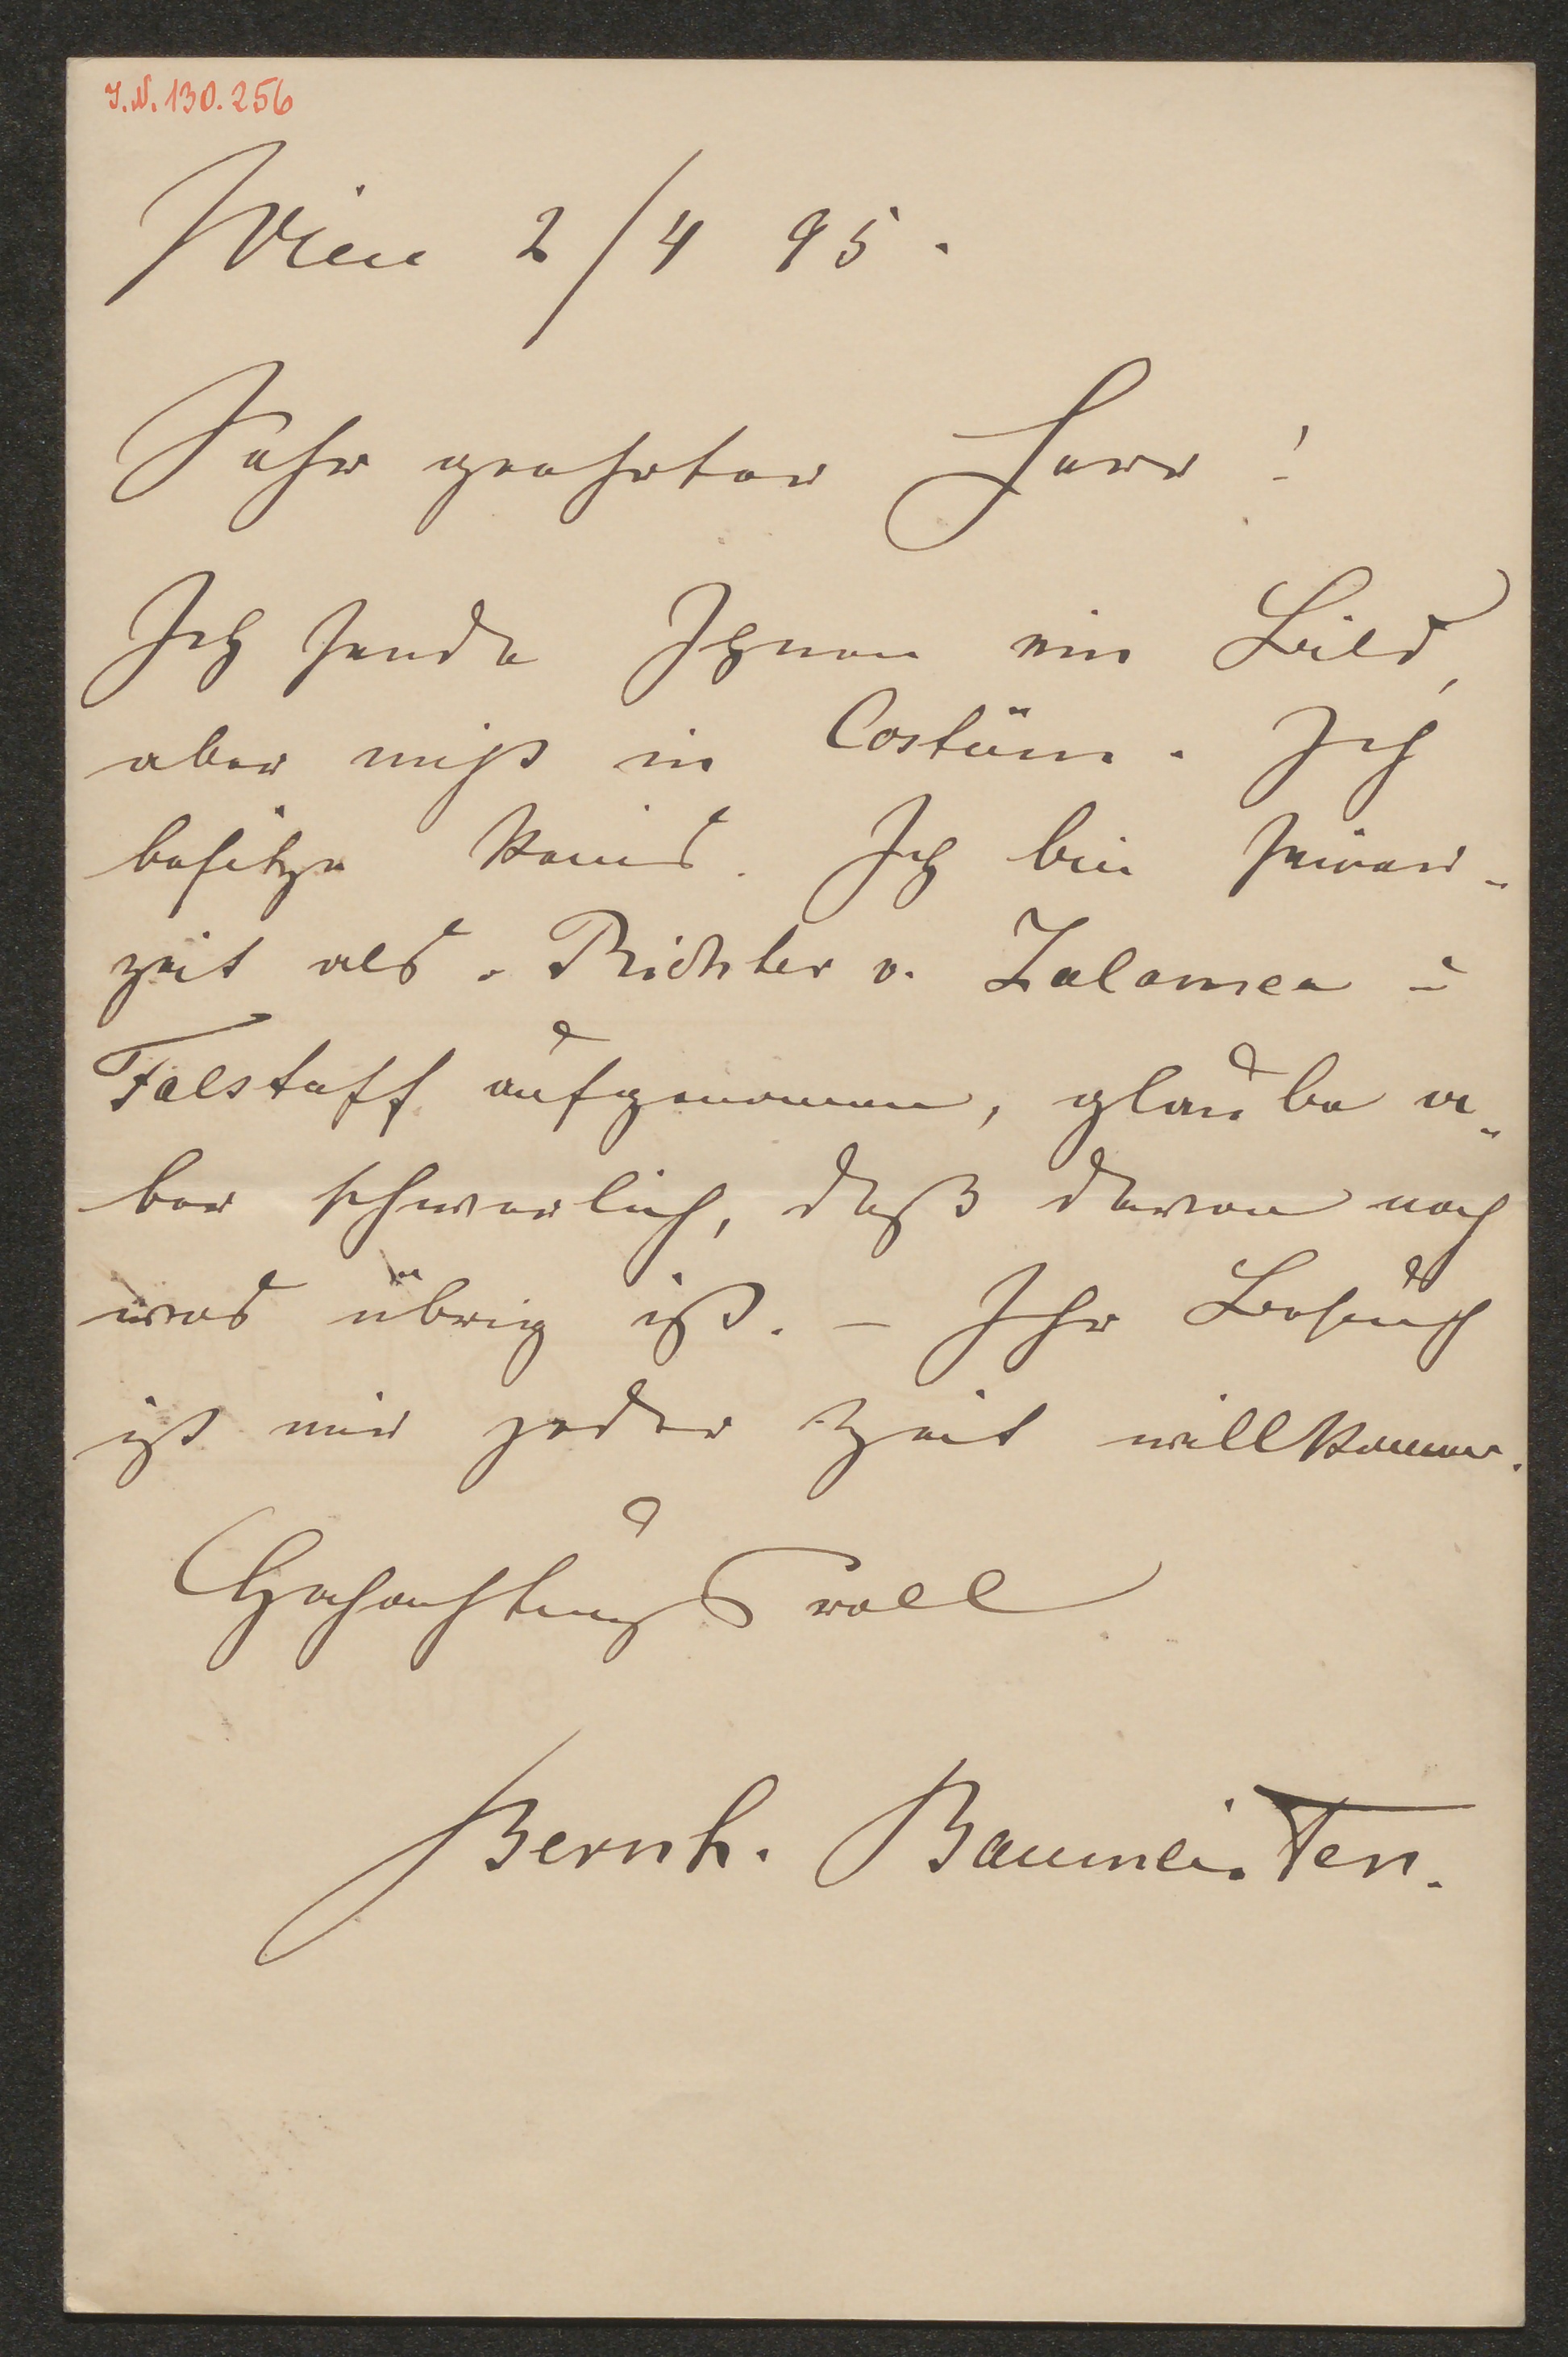 J.N. 130.256
Wien 2/4 95.
Sehr geehrter Herr!
Ich sende Ihnen ein Bild,
aber nicht in Costüm. Ich
besitze keins. Ich bin seiner-
zeit als. Richter v. Zalamea u
Falstaff aufgenommen, glaube a-
ber schwerlich, daß davon noch
was übrig ist. – Ihr Besuch
ist mir jeder Zeit willkommen.
Hochachtungsvoll
Bernh. Baumeister.